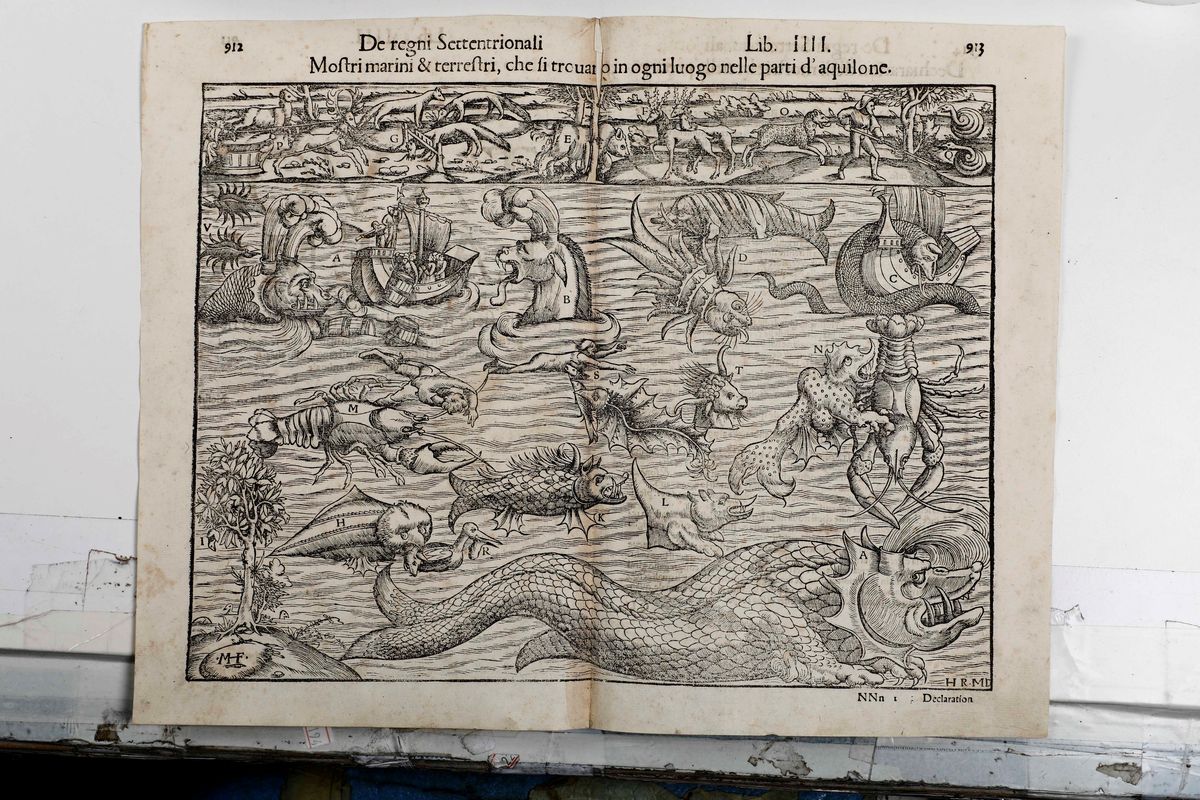 912
De regni Settentrionali
Lib. IIII.
913
Moſtri marini & terreſtri, che ſi trouano in ogni luogo nelle parti d'aquilone.
P
G
E
O
V
A
B
D
C
S
T
N
M
H
K
L
I
R
A
MF
H R·MD
NNn 1 : Declaration